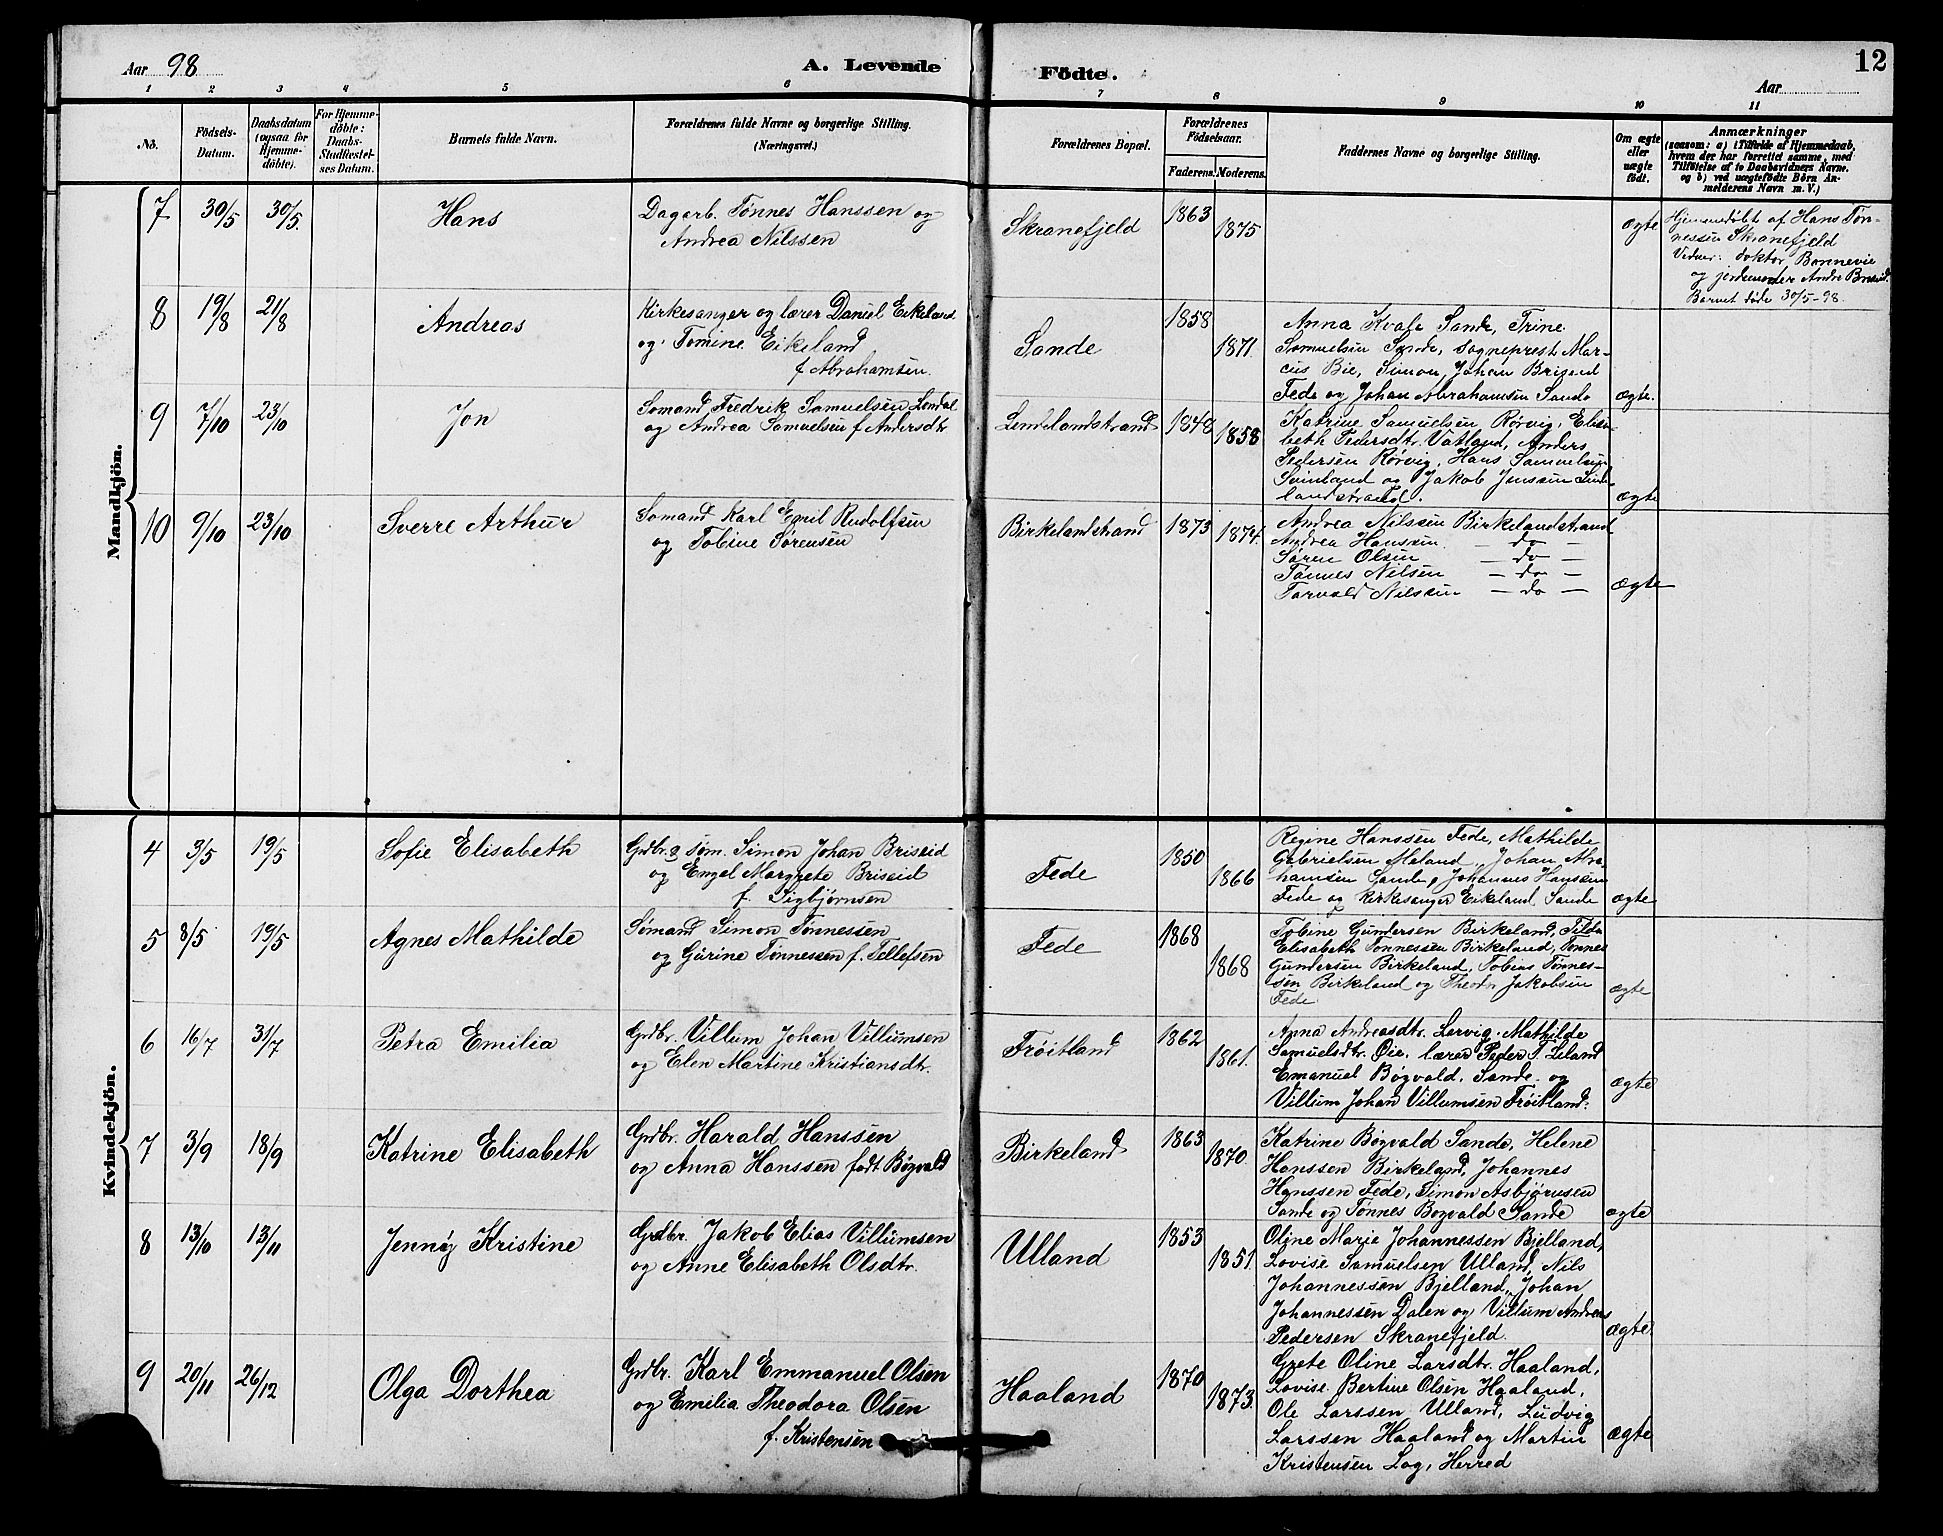 Aar 98
A. Levende
Födte.
Aar
12
1 2 3 4 5 6 7 8 9 10 11
No.
Födsels-
Datum.
Daabsdatum
(ogsaa for
Hjemme-
döbte).
For Hjemme-
döbte:
Daabs-
Stadfæstel-
ses Datum.
Barnets fulde Navn.
Forældrenes fulde Navne og borgerlige Stilling.
(Næringsvei.)
Forældrenes Bopæl.
Forældrenes
Födselsaar.
Faderens. Moderens.
Faddernes Navne og borgerlige Stilling.
Om ægte
eller
uægte
födt.
Anmærkninger
(saasom: a) i Tilfælde af Hjemmedaab,
hvem der har forrettet samme, med
Tilföielse af to Daabsvidners Navne.
og b) ved uægtefödte Börn An-
melderens Navn m. V.)
Mandkjön.
7 30/5 30/5.
Hans
Dagarb. Tönnes Hanssen og
Andrea Nilssen
Skranefjeld
1863
1875
ægte
Hjemmedøbt af Hans Tøn-
nessen Skranefjeld
Vidner: doktor Bonnevie
og jordemoder Andre
Barnet døde 30/5-98.
8 19/8 21/8
Andreas
Kirkesanger og lærer Daniel Eikeland
og Tomine Eikeland
f Abrahamsen.
Sande
1858
1871.
Anna Kvale Sande, Trine
Samuelsen Sande, sogneprest Mar-
cus Bie, Simon Johan Briseid
Fede og Johan Abrahamsen Sande
ægte.
9 7/10 23/10
Jon
Sømand Fredrik Samuelsen
og Andrea Samuelsen f Andersdtr
Lendelandstrand
1848
1858
Katrine Samuelsen Rörvig, Elisa-
beth Pedersdtr. Vatland, Anders
Pedersen Rørvig, Hans Samuelsen
Svinland og Jakob Jenssen
landstrand.
ægte
10 9/10 23/10
Sverre Arthur
Sømand Karl Emil Rudolfsen
og Tobine Sørensen
Birkelandstrand
1873
1874.
Andrea Nilssen Birkelandstrand
Andrea Hanssen — do —
Søren Olsen — do —
Tönnes Nilsen — do —
Torvald Nilssen — do —
ægte
Kvindekjön.
4 3/5 19/5
Sofie Elisabeth
Grdbr. & søm. Simon Johan Briseid
og Engel Margrete Briseid
f. Sigbjørnsen
Fede
1850
1866
Regine Hanssen Fede, Mathilde
Gabrielsen Meland, Johan Abra-
hamsen Sande, Johannes Hanssen
Fede og kirkesanger Eikeland Sande
ægte
5 8/5 19/5
Agnes Mathilde
Sømand Simon Tønnessen
og Gurine Tønnessen f. Tellefsen
Fede
1868
1868
Tobine Gundersen Birkeland, Tilda
Elisabeth Tønnessen Birkeland, Tønnes
Gundersen Birkeland, Tobias Tønnes-
sen Birkeland og Theodor Jakobsen
Fede
ægte
6 16/7 31/7
Petra Emilia
Grdbr. Villum Johan Villumsen
og Elen Martine Kristiansdtr.
Frøitland
1862
1861.
Anna Andreasdtr. Lervig. Mathilde
Samuelsdtr. Øie. lærer Peder T. Leland
Emanuel Bøgvald. Sande. og
Villum Johan Villumsen Frøitland.
ægte
7 3/9 18/9
Katrine Elisabeth
Grdbr. Harald Hanssen
og Anna Hanssen født Bøgvald
Birkeland
1863
1870.
Katrine Bøgvald Sande, Helene
Hanssen Birkeland, Johannes
Hanssen Fede, Simon Asbjørnsen
Sande og Tønnes Bøgvald Sande
ægte
8 13/10 13/11
Jenny Kristine
Grdbr. Jakob Elias Villumsen
og Anne Elisabeth Olsdtr.
Ulland
1853
1851.
Oline Marie Johannessen Bjelland,
Lovise Samuelsen Ulland, Nils
Johannessen Bjelland, Johan
Johannessen Dalen og Villum Andreas
Pedersen Skranefjeld.
ægte.
9 20/11 26/12
Olga Dorthea
Grdbr. Karl Emmanuel Olsen
og Emilia Theodora Olsen
f. Kristensen
Haaland
1870
1873.
Grete Oline Larsdtr. Haaland,
Lovise Bertine Olsen Haaland,
Ole Larssen Ulland, Ludvig
Larssen Haaland og Martin
Kristensen Log, Herred
ægte